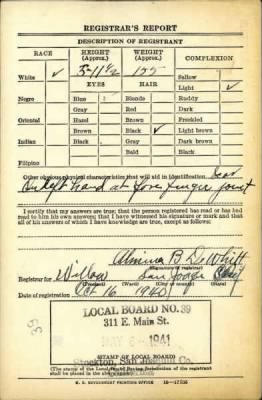 REGISTRAR'S REPORT
DESCRIPTION OF REGISTRANT
RACE HEIGHT (Approx.) WEIGHT (Approx.) COMPLEXION
White ✓ 5-11½ 155 Sallow
EYES HAIR Light ✓
Negro Blue Blonde Ruddy
Gray Red Dark
Oriental Hazel Brown Freckled
Brown ✓ Black ✓ Light brown
Indian Black Gray Dark brown
Bald Black
Filipino
Other obvious physical characteristics that will aid in identification Scar
on left hand at fore finger joint
I certify that my answers are true; that the person registered has read or has had
read to him his own answers; that I have witnessed his signature or mark and that
all of his answers of which I have knowledge are true, except as follows:
Almina B. DeWhitt
(Signature of registrar)
Registrar for Willow
(Precinct) (Ward) (City or county) (State)
Date of registration Oct 16 1940
39
LOCAL BOARD NO. 39
311 E. Main St.
MAY 1941
(STAMP OF LOCAL BOARD)
Stockton, San Joaquin Co.
(The stamp of the Local Board having jurisdiction of the registrant
shall be placed in the above space.)
U. S. GOVERNMENT PRINTING OFFICE 16-17105